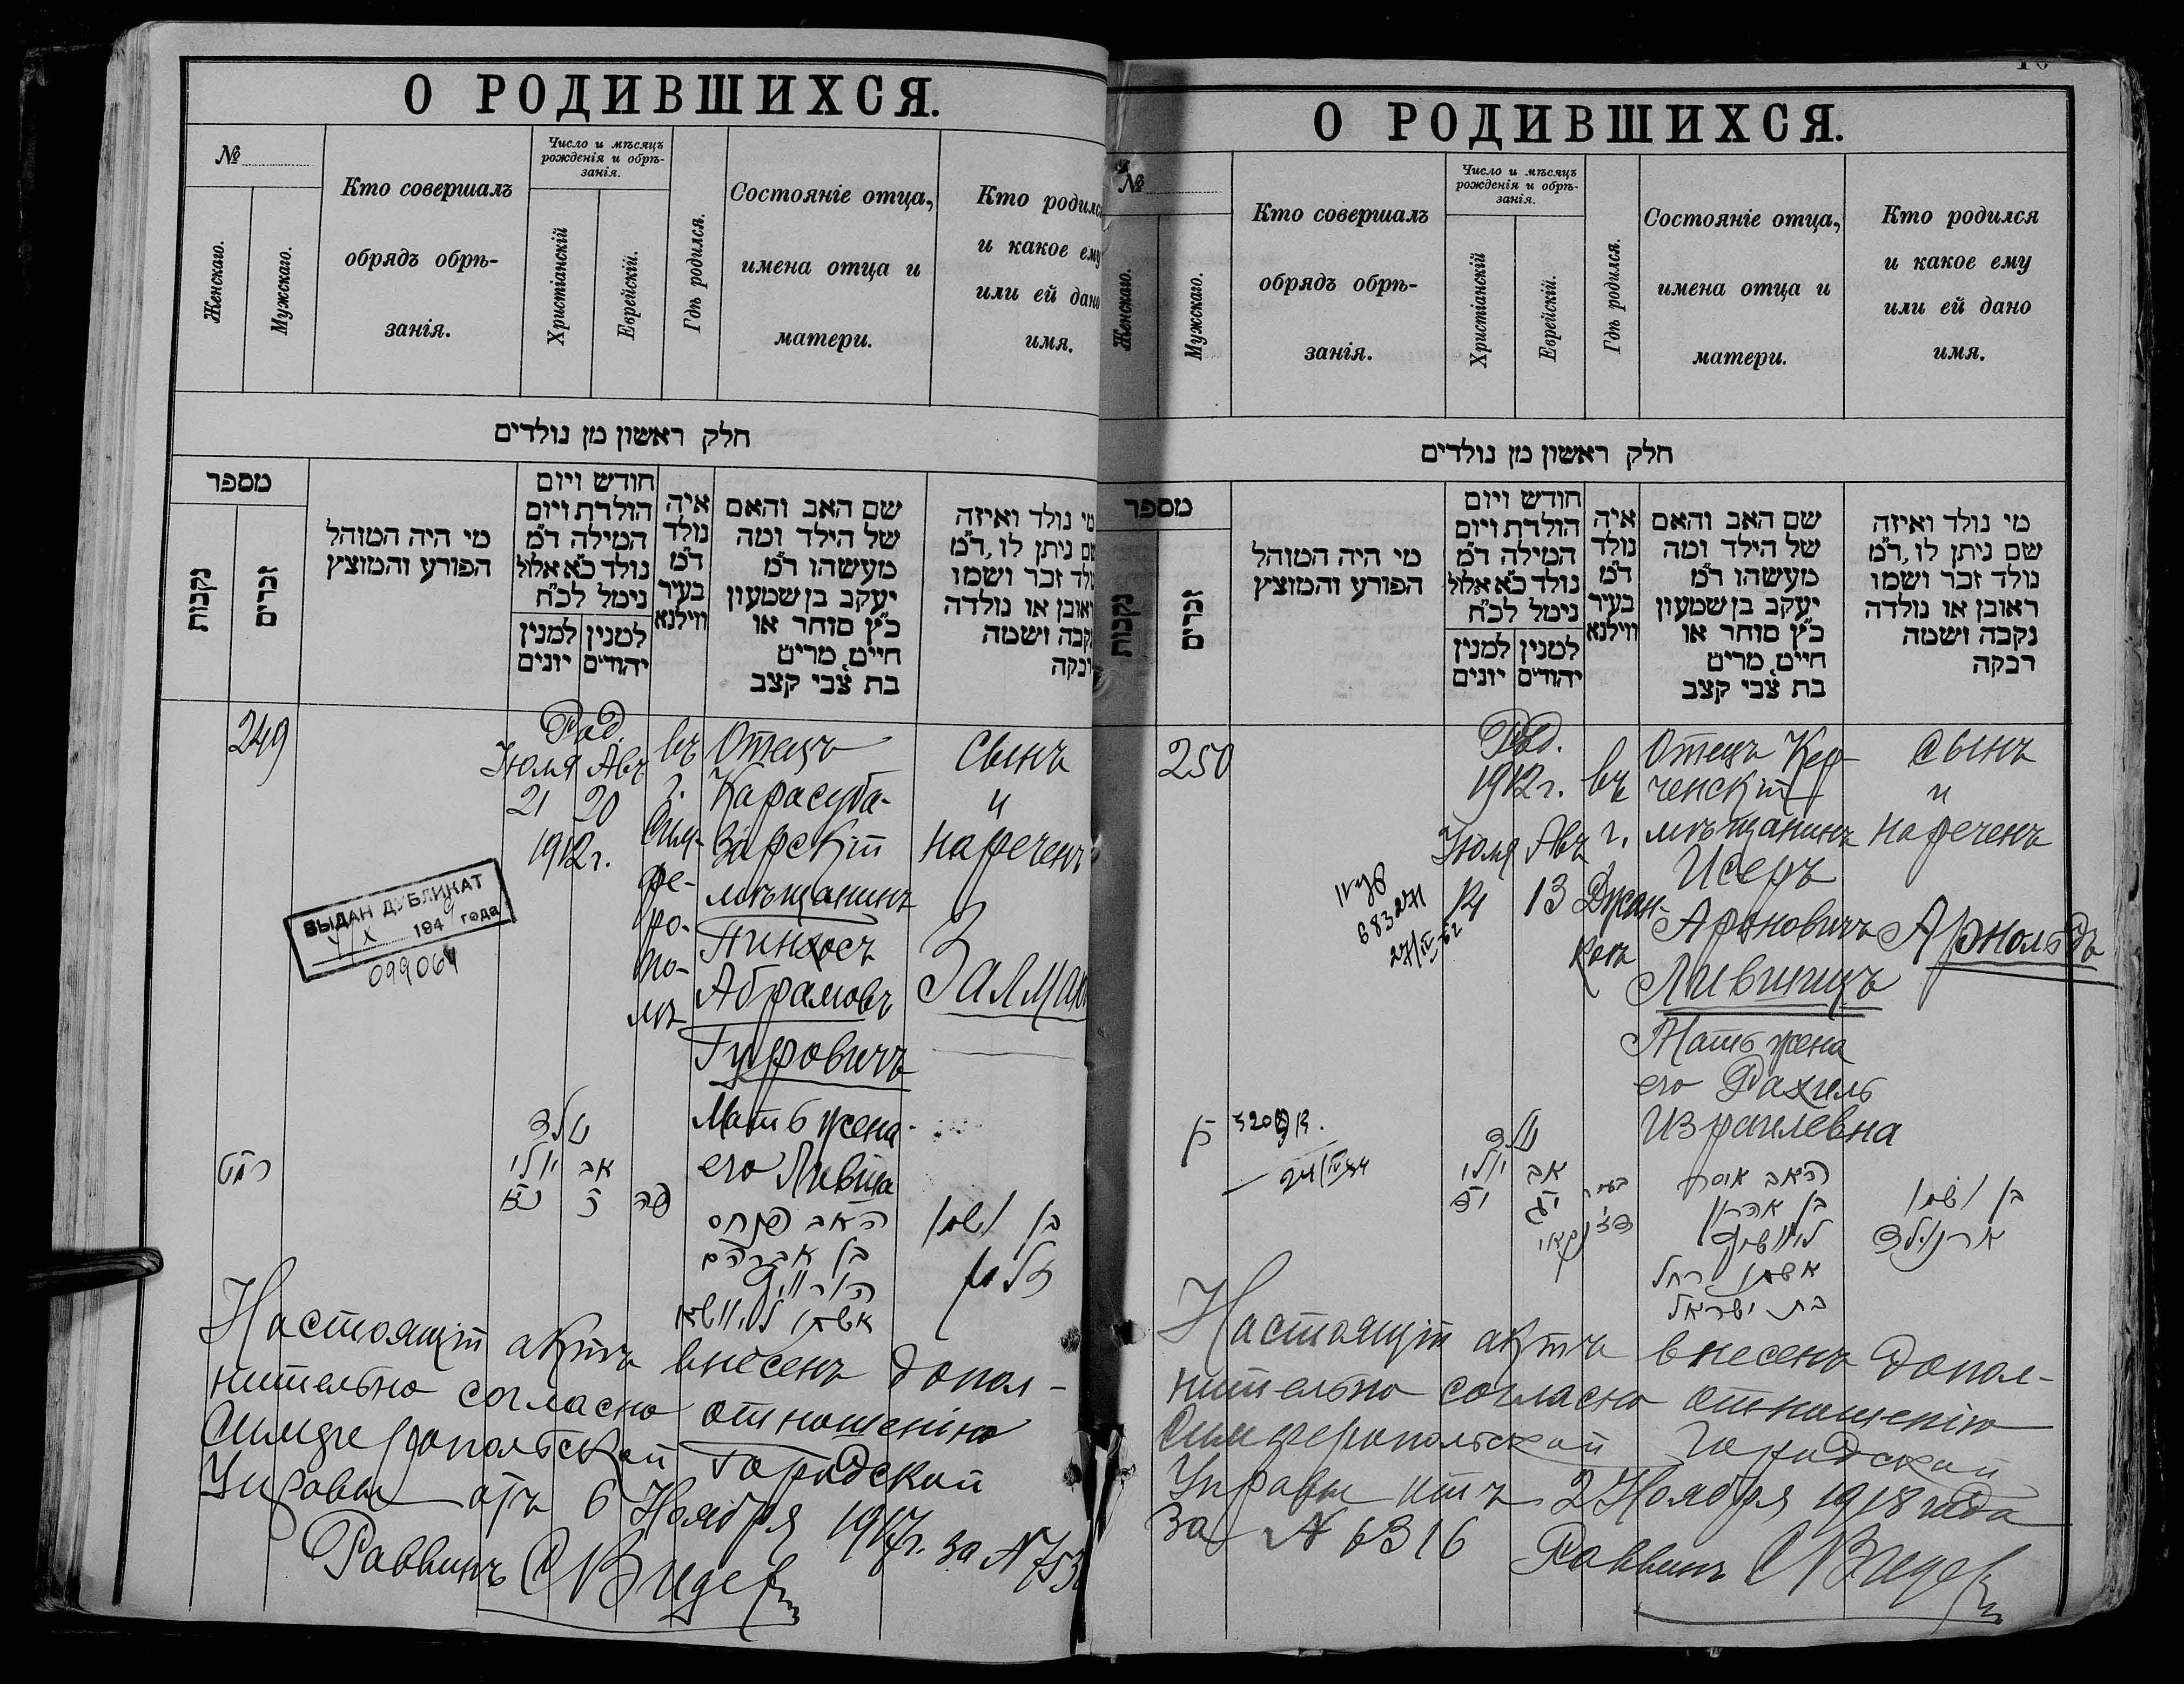 О РОДИВШИХСЯ.
№
Женскаго.
Мужскаго.
Кто совершалъ
обрядъ обрѣ-
занія.
Число и мѣсяцъ
рожденія и обрѣ-
занія.
Христіанскій
Еврейскій.
Гдѣ родился.
Состояніе отца,
имена отца и
матери.
Кто родилс
и какое ему
или ей дано
имя.
חלק ראשון מן נולדים
מספר
נקבות
זכרים
מי היה המוהל
הפורע והמוצץ
חודש ויום
הולדת ויום
המילה ד״מ
נולד כ״א אלול
נימל לכ״ח
למנין יהודים
למנין יונים
איה
נולד
ד״מ
בעיר
ווילנא
שם האב והאם
של הילד ומה
מעשהו ד״מ
יעקב בן שמעון
כ״ץ סוחר או
חייט, מרים
בת צבי קצב
מי נולד ואיזה
שם ניתן לו, ד״מ
נולד זכר ושמו
ראובן או נולדה
נקבה ושמה
רבקה
249
Род.
Іюля Авъ
21 20
1912 г.
въ
г.
Сим-
фе-
ро-
по-
лѣ
Отецъ
Карасуба-
зарскій
мѣщанинъ
Пинхосъ
Абрамовъ
Гуровичъ
Мать жена
его Лившa
Сынъ
и
нареченъ
Залман
ВЫДАН ДУБЛИКАТ
194 года
099064
רמט
נולד
אב יולי
פה
האב פנחס
בן אברהם
הורוויץ
בן ושמו
זלמן
Настоящій актъ внесенъ допол-
нительно согласно отношенію
Симферопольской Городской
Управы отъ 6 Ноября 1917 г. за №
Раввинъ
О РОДИВШИХСЯ.
№
Женскаго.
Мужскаго.
Кто совершалъ
обрядъ обрѣ-
занія.
Число и мѣсяцъ
рожденія и обрѣ-
занія.
Христіанскій
Еврейскій.
Гдѣ родился.
Состояніе отца,
имена отца и
матери.
Кто родился
и какое ему
или ей дано
имя.
חלק ראשון מן נולדים
מספר
נקבות
זכרים
מי היה המוהל
הפורע והמוצץ
חודש ויום
הולדת ויום
המילה ד״מ
נולד כ״א אלול
נימל לכ״ח
למנין יהודים
למנין יונים
איה
נולד
ד״מ
בעיר
ווילנא
שם האב והאם
של הילד ומה
מעשהו ד״מ
יעקב בן שמעון
כ״ץ סוחר או
חייט, מרים
בת צבי קצב
מי נולד ואיזה
שם ניתן לו, ד״מ
נולד זכר ושמו
ראובן או נולדה
נקבה ושמה
רבקה
250
Род.
1912 г.
Іюля Авъ
14 13
въ
г.
Джан-
коѣ
Отецъ Кер-
ченскій
мѣщанинъ
Исеръ
Ароновичъ
Лившицъ
Мать жена
его Рахиль
Израилевна
сынъ
и
нареченъ
Арнольдъ
רן
נולד
אב יולי
יג יד
בעיר
דזנקאוי
האב איסר
בן אהרון
ליוושיץ
אשתו רחל
בת ישראל
בן ושמו
ארנולד
Настоящій актъ внесенъ допол-
нительно согласно отношенію
Симферопольской Городской
Управы отъ 2 Ноября 1918 года
за № 6316
Раввинъ